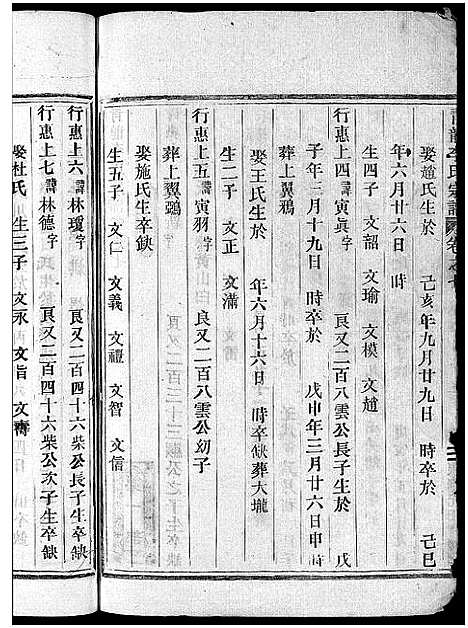 李氏宗譜 卷之
娶趙氏生於 己亥年九月廿九日 時卒於 己巳
年六月廿六日 時
生四子 文韶 文瑜 文模 文趙
行惠上四諱寅眞字 良又二百八雲公長子生於 戊
子年三月十九日 時卒於 戊申年三月廿六日申時
葬上翼鴉
娶王氏生於 年六月十六日 時卒缺葬大壠
生二子 文正 文滿
行惠上五諱寅羽字 良又二百八雲公幼子
葬上翼鵶
娶施氏生卒缺
生五子 文仁 文義 文禮 文智 文信
行惠上六諱林瓊字 良又二百四十六柴公長子生卒缺
行惠上七諱林德字 良又二百四十六柴公次子生卒缺
娶杜氏 生三子 文永 文旨 文